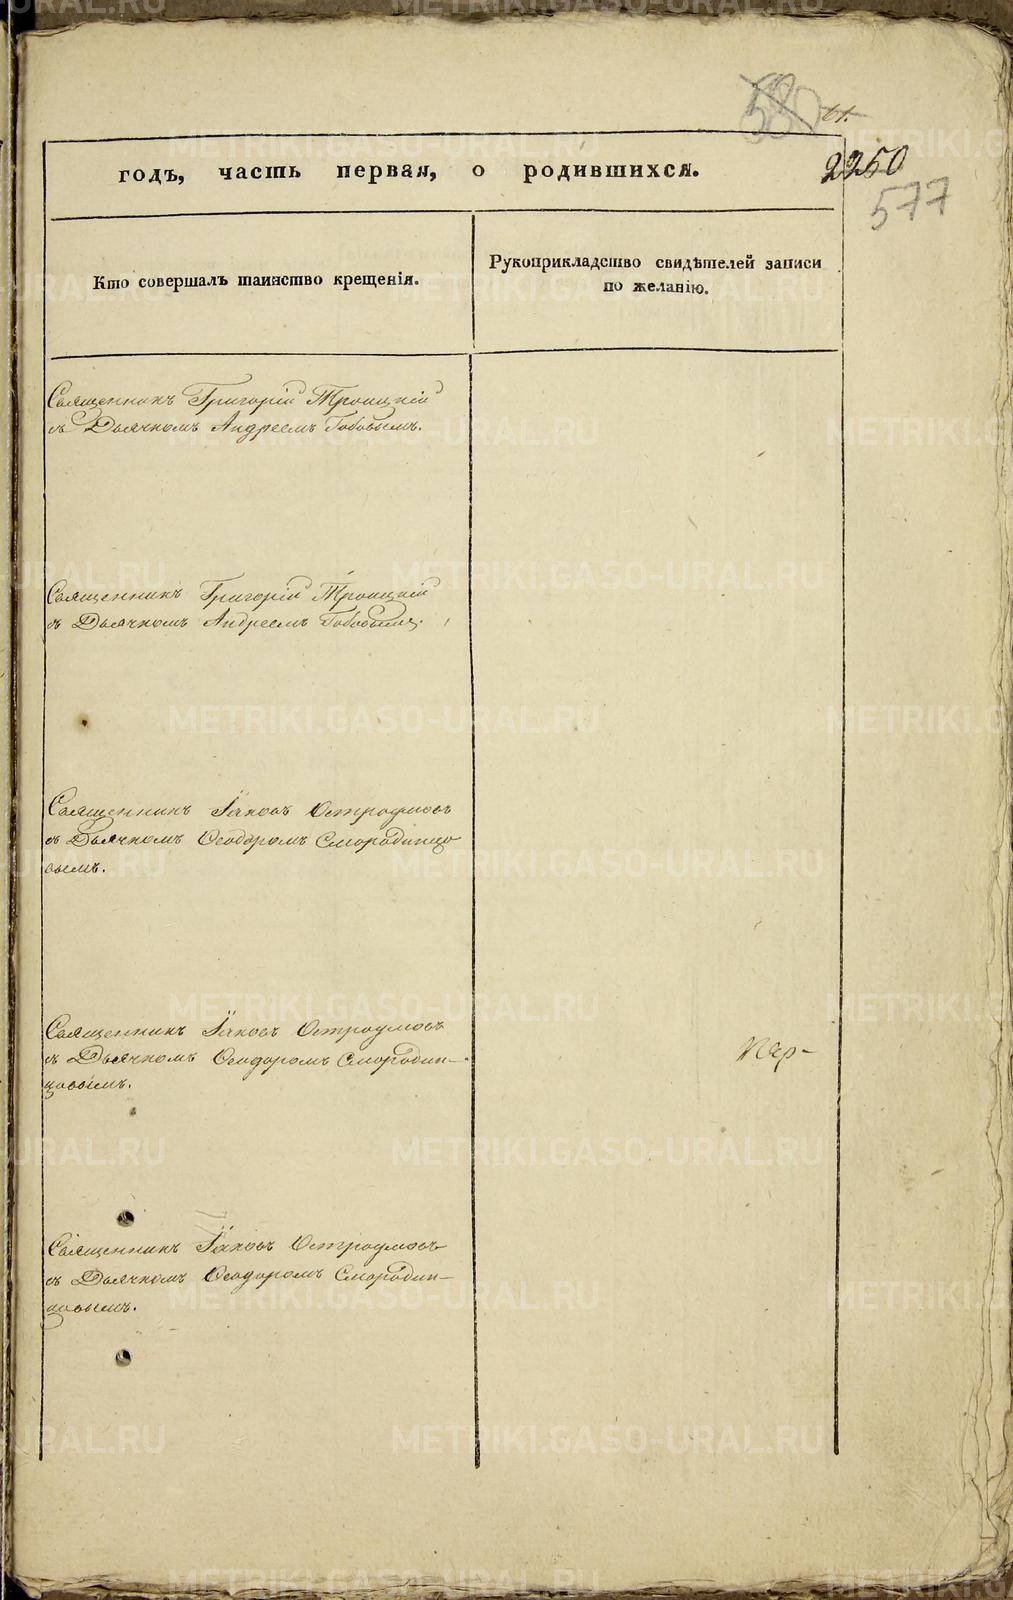 580 61.
2250
577
годъ, часть первая, о родившихся.
Кто совершалъ таинство крещенія.
Рукоприкладство свидѣтелей записи
по желанію.
Священникъ Григорій Троицкій
съ Дьячкомъ Андреемъ Бобовымъ.
Священникъ Григорій Троицкій
съ Дьячкомъ Андреемъ Бобовымъ.
Священникъ Іаковъ Остроумовъ
съ Дьячкомъ Ѳеодоромъ Смородинцо
вымъ.
Священникъ Іаковъ Остроумовъ
съ Дьячкомъ Ѳеодоромъ Смородин-
цовымъ.
Священникъ Іаковъ Остроумовъ
съ Дьячкомъ Ѳеодоромъ Смородин-
цовымъ.
METRIKI.GASO-URAL.RU